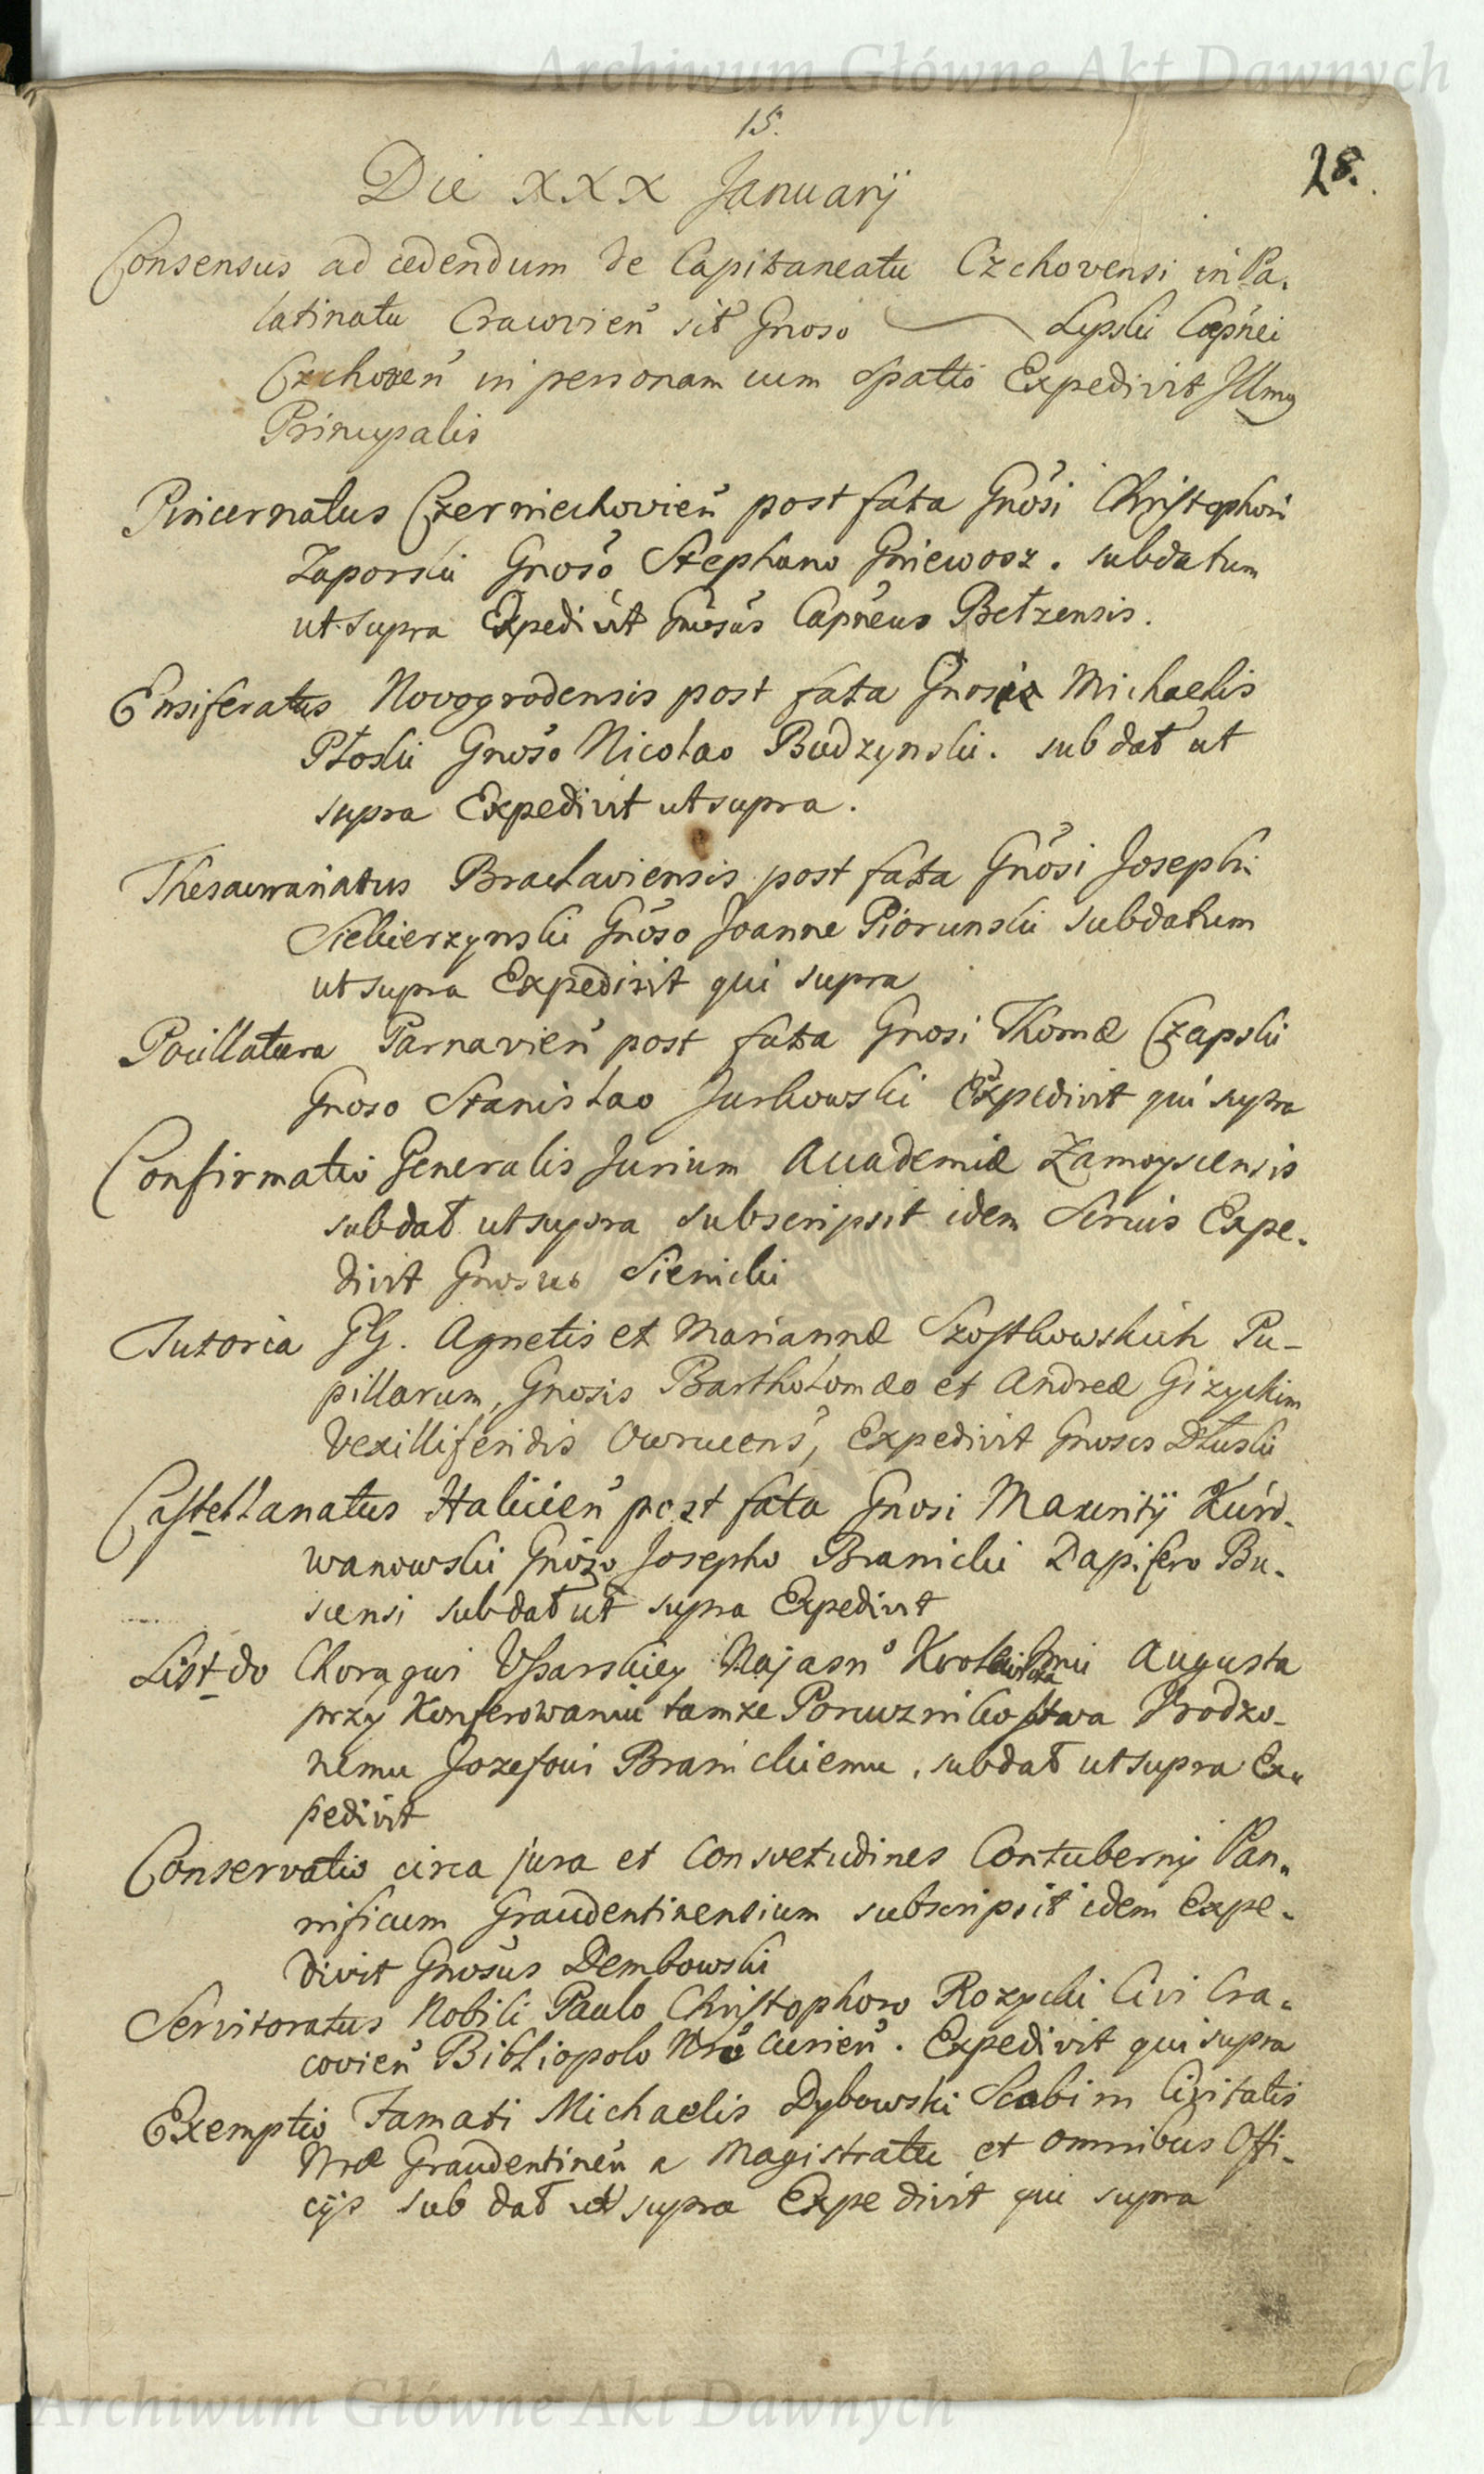 Archiwum Główne Akt Dawnych
15.
28.
Die XXX Januarij
Consensus ad cedendum de Capitaneatu Czchovensi in Pa-
latinatu Cracovien sit Gnoso Lipski Capnei
Czchoven in personam cum spatio Expedivit Illmg
Principalis
Pincernatus Czerniechovien post fata Gnosi Christophori
Zaporski Gnoso Stephano Gniewosz. sub datum
ut supra Expedivit Gnosus Capneus Betzensis.
Ensiferatus Novogrodensis post fata Gnosi Michaelis
Płoski Gnoso Nicolao Budzynski. sub dat ut
supra Expedivit ut supra.
Thesaurariatus Braclaviensis post fata Gnosi Josephi
Siekierzynski Gnoso Joanne Piorunski sub datum
ut supra Expedivit qui supra
Pocillatura Parnavien post fata Gnosi Thomæ Czapski
Gnoso Stanislao Jurkowski Expedivit qui supra
Confirmatio Generalis Jurium Academiæ Zamoyscensis
sub dat ut supra subscripsit idem Sernis Expe-
divit Gnosus Sienicki
Tutoria GG. Agnetis et Mariannæ Szostkowskich Pu-
pillarum, Gnosis Bartholomæo et Andreæ Gizyckim
Vexilliferidis Owrucens, Expedivit Gnosus Dłuski
Castellanatus Halicien post fata Gnosi Maxuritij Kurd-
wanowski Gnoso Josepho Branicki Dapifero Bu-
scensi sub dat ut supra Expedivit
List do Chorągwi Ussarskiey Najasn Krolewica Jmci Augusta
przy Konferowaniu tamze Porucznikostwa Urodzo-
nemu Jozefowi Branickiemu, sub dat ut supra Ex-
pedivit
Conservatio circa jura et Consvetudines Contubernij Pan-
nificum Graudentinensium subscripsit idem Expe-
divit Gnosus Dembowski
Servitoratus Nobili Paulo Christophoro Rozycki Civi Cra-
covien Bibliopolo Nro Curien. Expedivit qui supra
Exemptio Famati Michaelis Dybowski Scabini Civitatis
Nræ Graudentinen a Magistratu et omnibus Offi-
cijs sub dat ut supra Expedivit qui supra
Archiwum Główne Akt Dawnych